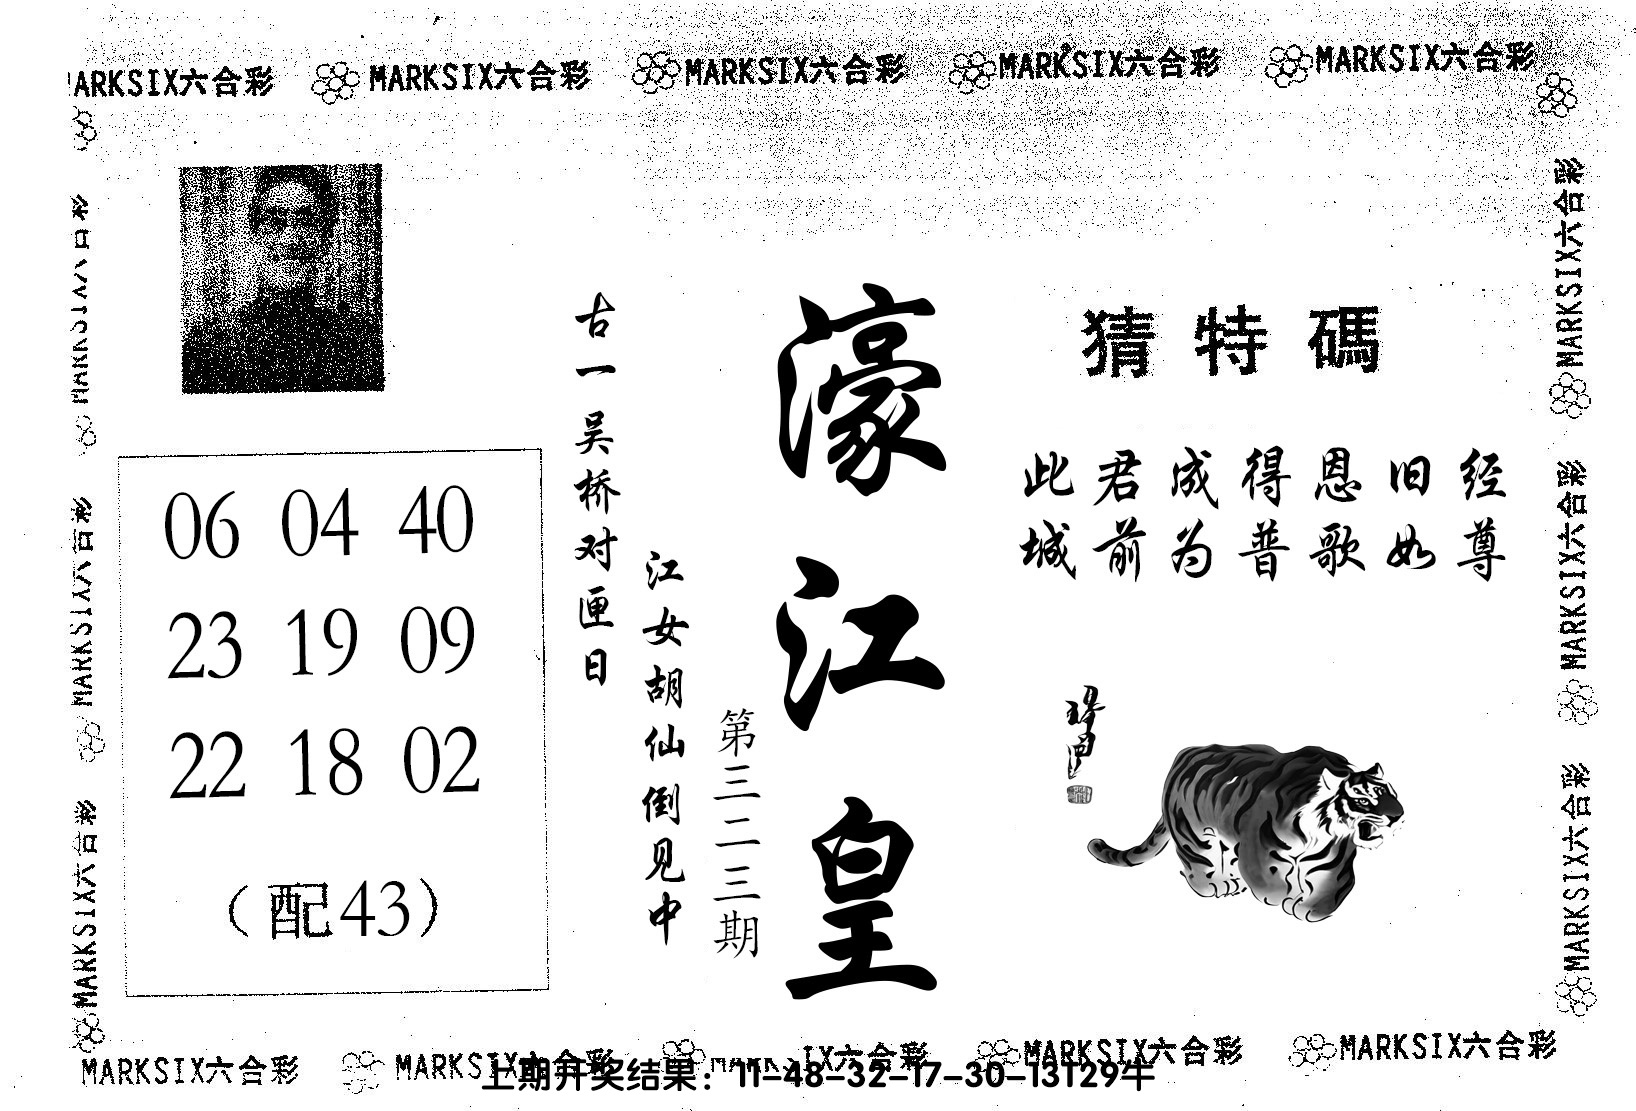 MARKSIX六合彩 MARKSIX六合彩 MARKSIX六合彩 MARKSIX六合彩 MARKSIX六合彩
MARKSIX六合彩
MARKSIX六合彩
MARKSIX六合彩
06 04 40
23 19 09
22 18 02
（配43）
古一吴桥对匣日
江女胡仙倒见中
第三二三期
濠江皇
猜特碼
此君成得恩旧经
城前为普歌如尊
MARKSIX六合彩
MARKSIX六合彩
MARKSIX六合彩
MARKSIX六合彩 MARKSIX六合彩 MARKSIX六合彩 MARKSIX六合彩 MARKSIX六合彩
上期开奖结果：11-48-32-17-30-13T29牛